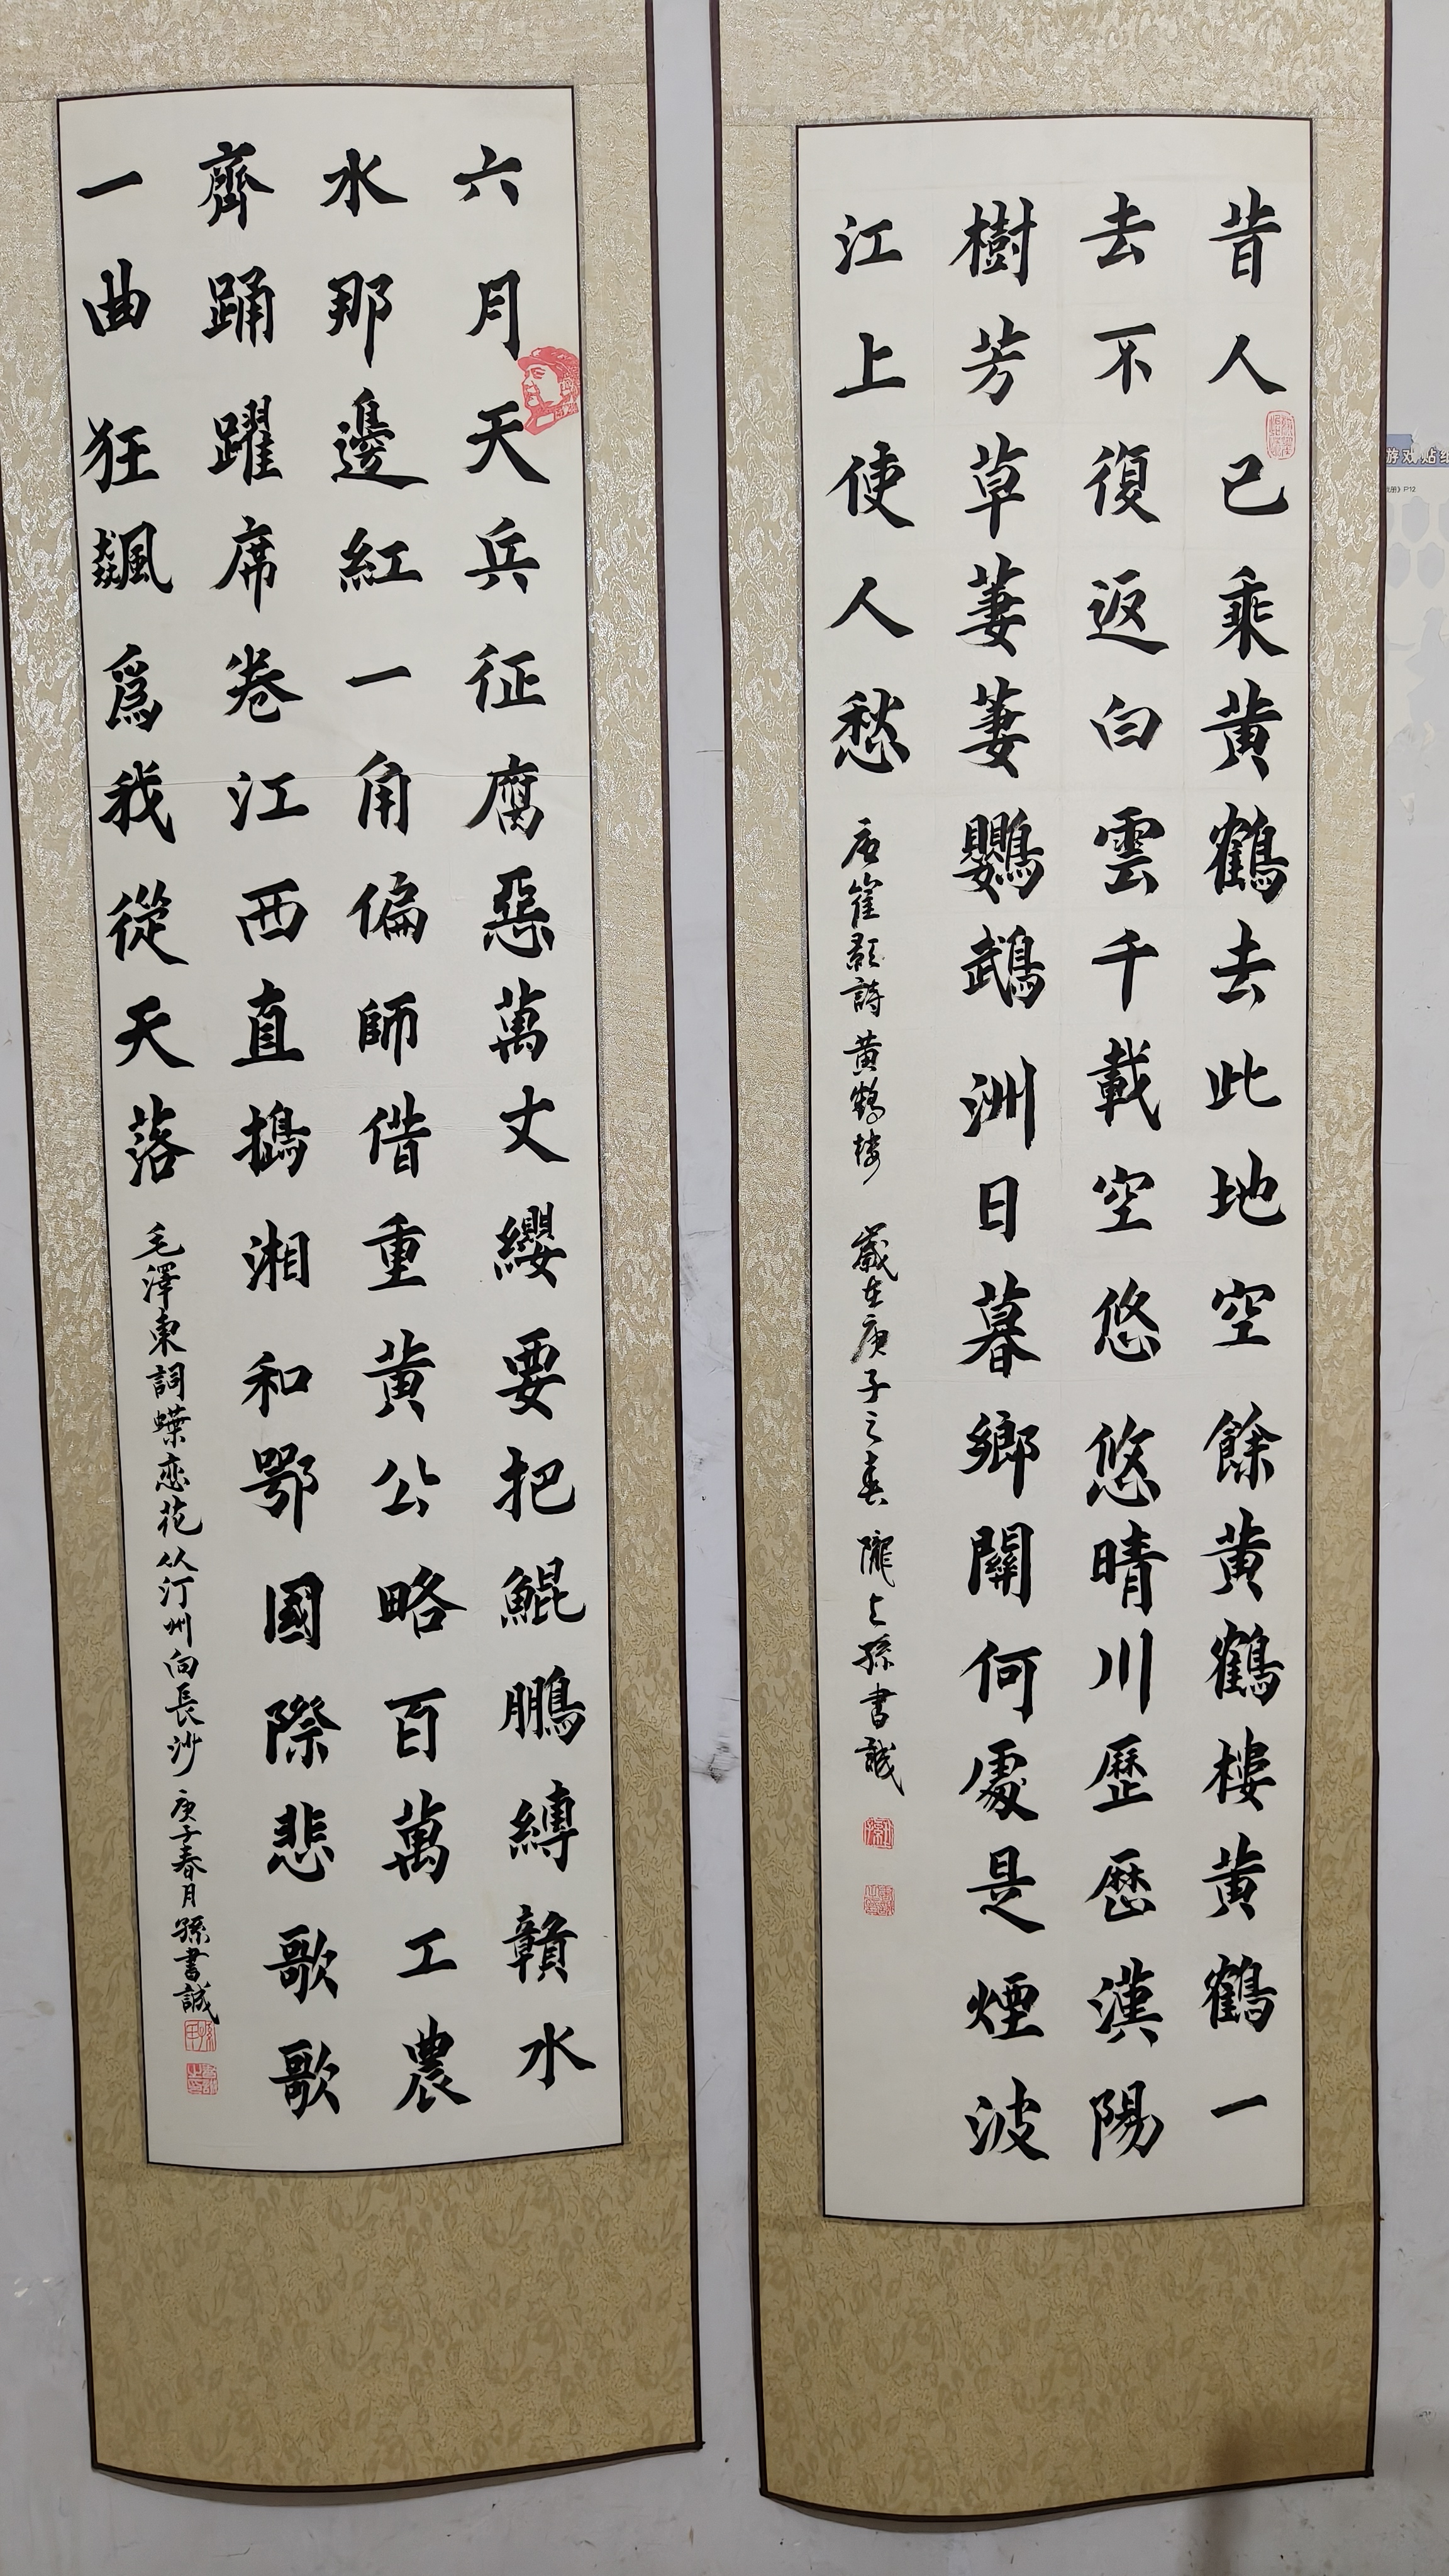 昔人已乘黄鶴去此地空餘黄鶴樓黄鶴一
去不復返白雲千載空悠悠晴川歷歷漢陽
樹芳草萋萋鸚鵡洲日暮鄉關何處是煙波
江上使人愁
唐崔顥詩黄鶴楼
歲在庚子之春
隴上孫書誠
六月天兵征腐惡萬丈纓要把鯤鵬縛贛水
水那邊紅一角偏師借重黄公略百萬工農
齊踊躍席卷江西直搗湘和鄂國際悲歌歌
一曲狂飆爲我從天落
毛澤東詞蝶恋花从汀州向長沙
庚子春月孫書誠
游戏贴纸